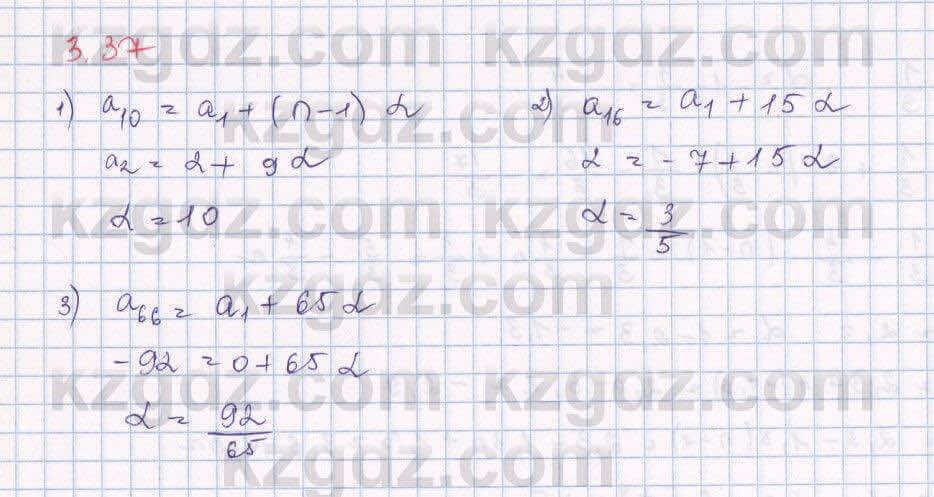 3.37
1) a₁₀ = a₁ + (n-1) d
a₂ = 2 + 9d
d = 10
2) a₁₆ = a₁ + 15d
2 = -7 + 15d
d = 3/5
3) a₆₆ = a₁ + 65d
-92 = 0 + 65d
d = 92/65
kzgdz.com kzgdz.com
kzgdz.com
kzgdz.com kzgdz.com
kzgdz.com
kzgdz.com kzgdz.com
kzgdz.com